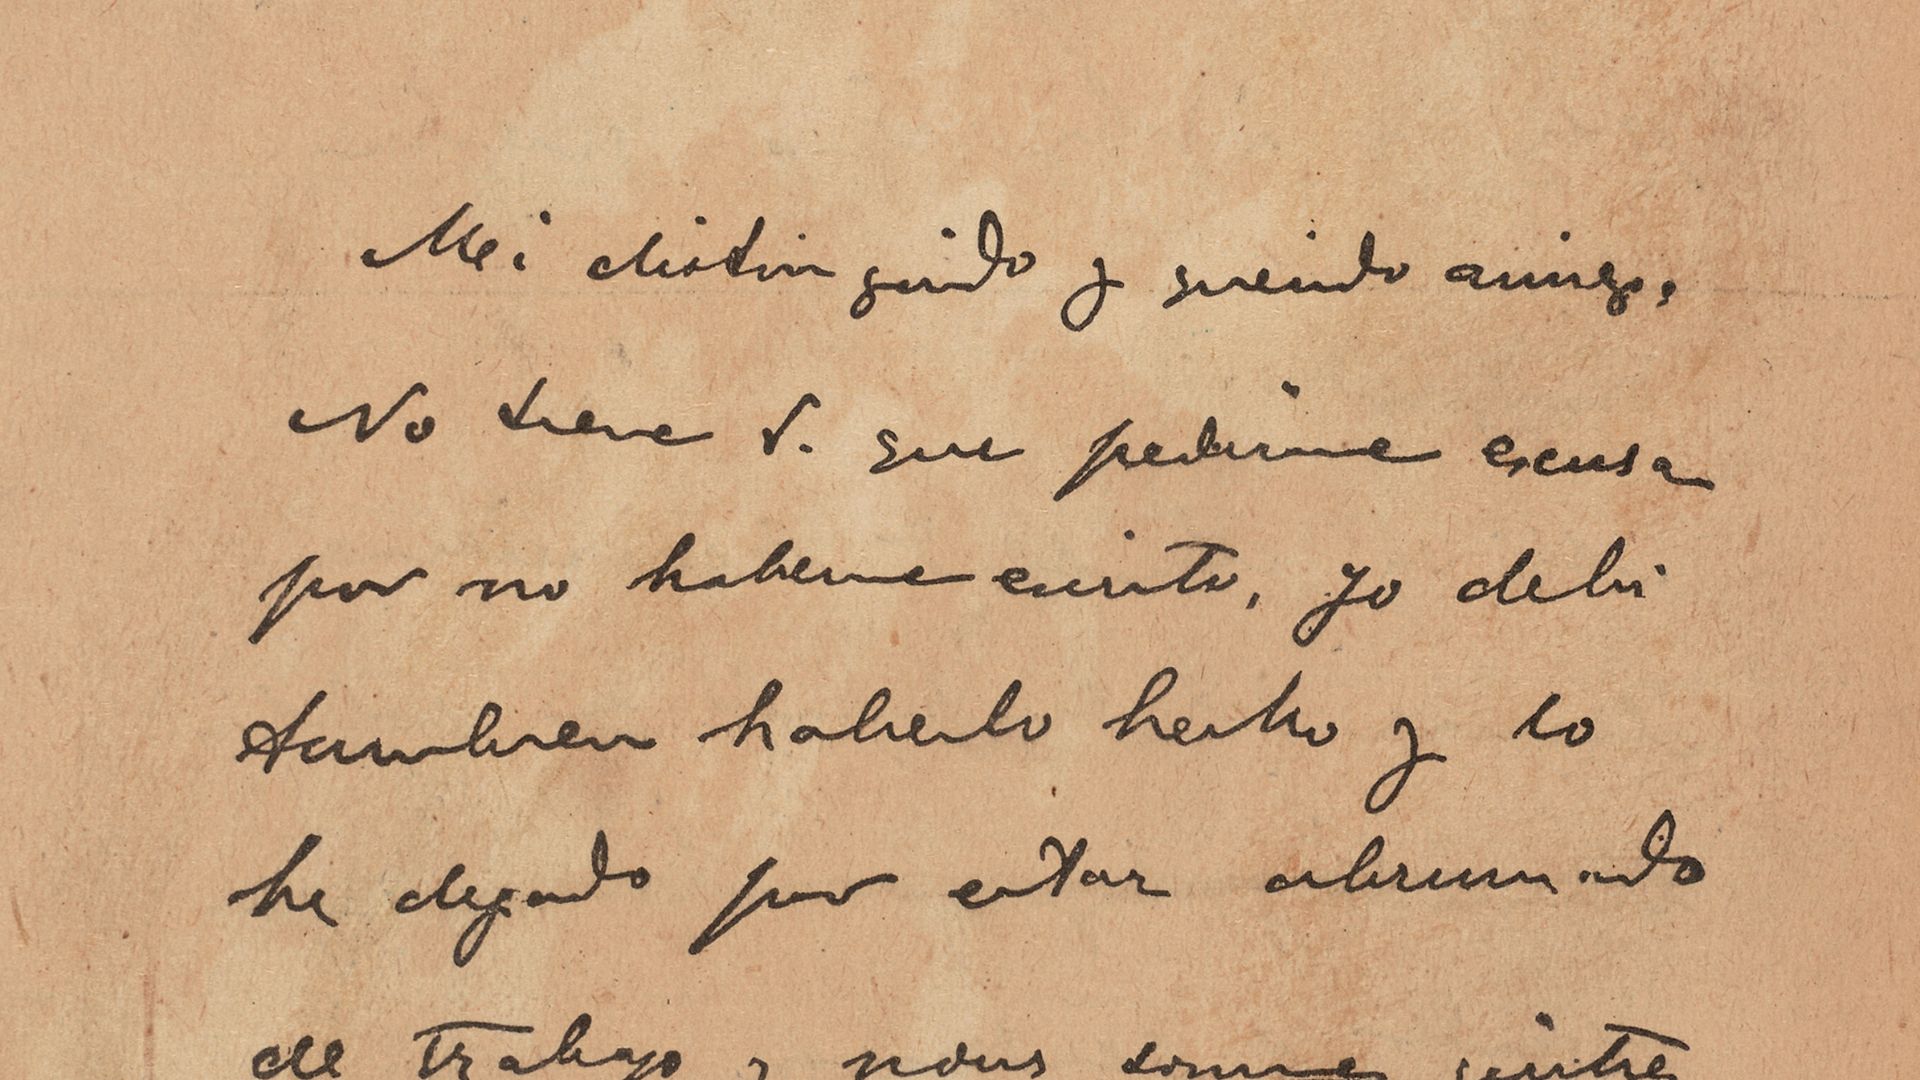 Mi distinguido y querido amigo,
No tiene V. que pedirme excusa
por no haberme escrito, yo debi
tambien haberlo hecho y lo
he dejado por estar abrumado
de trabajo y